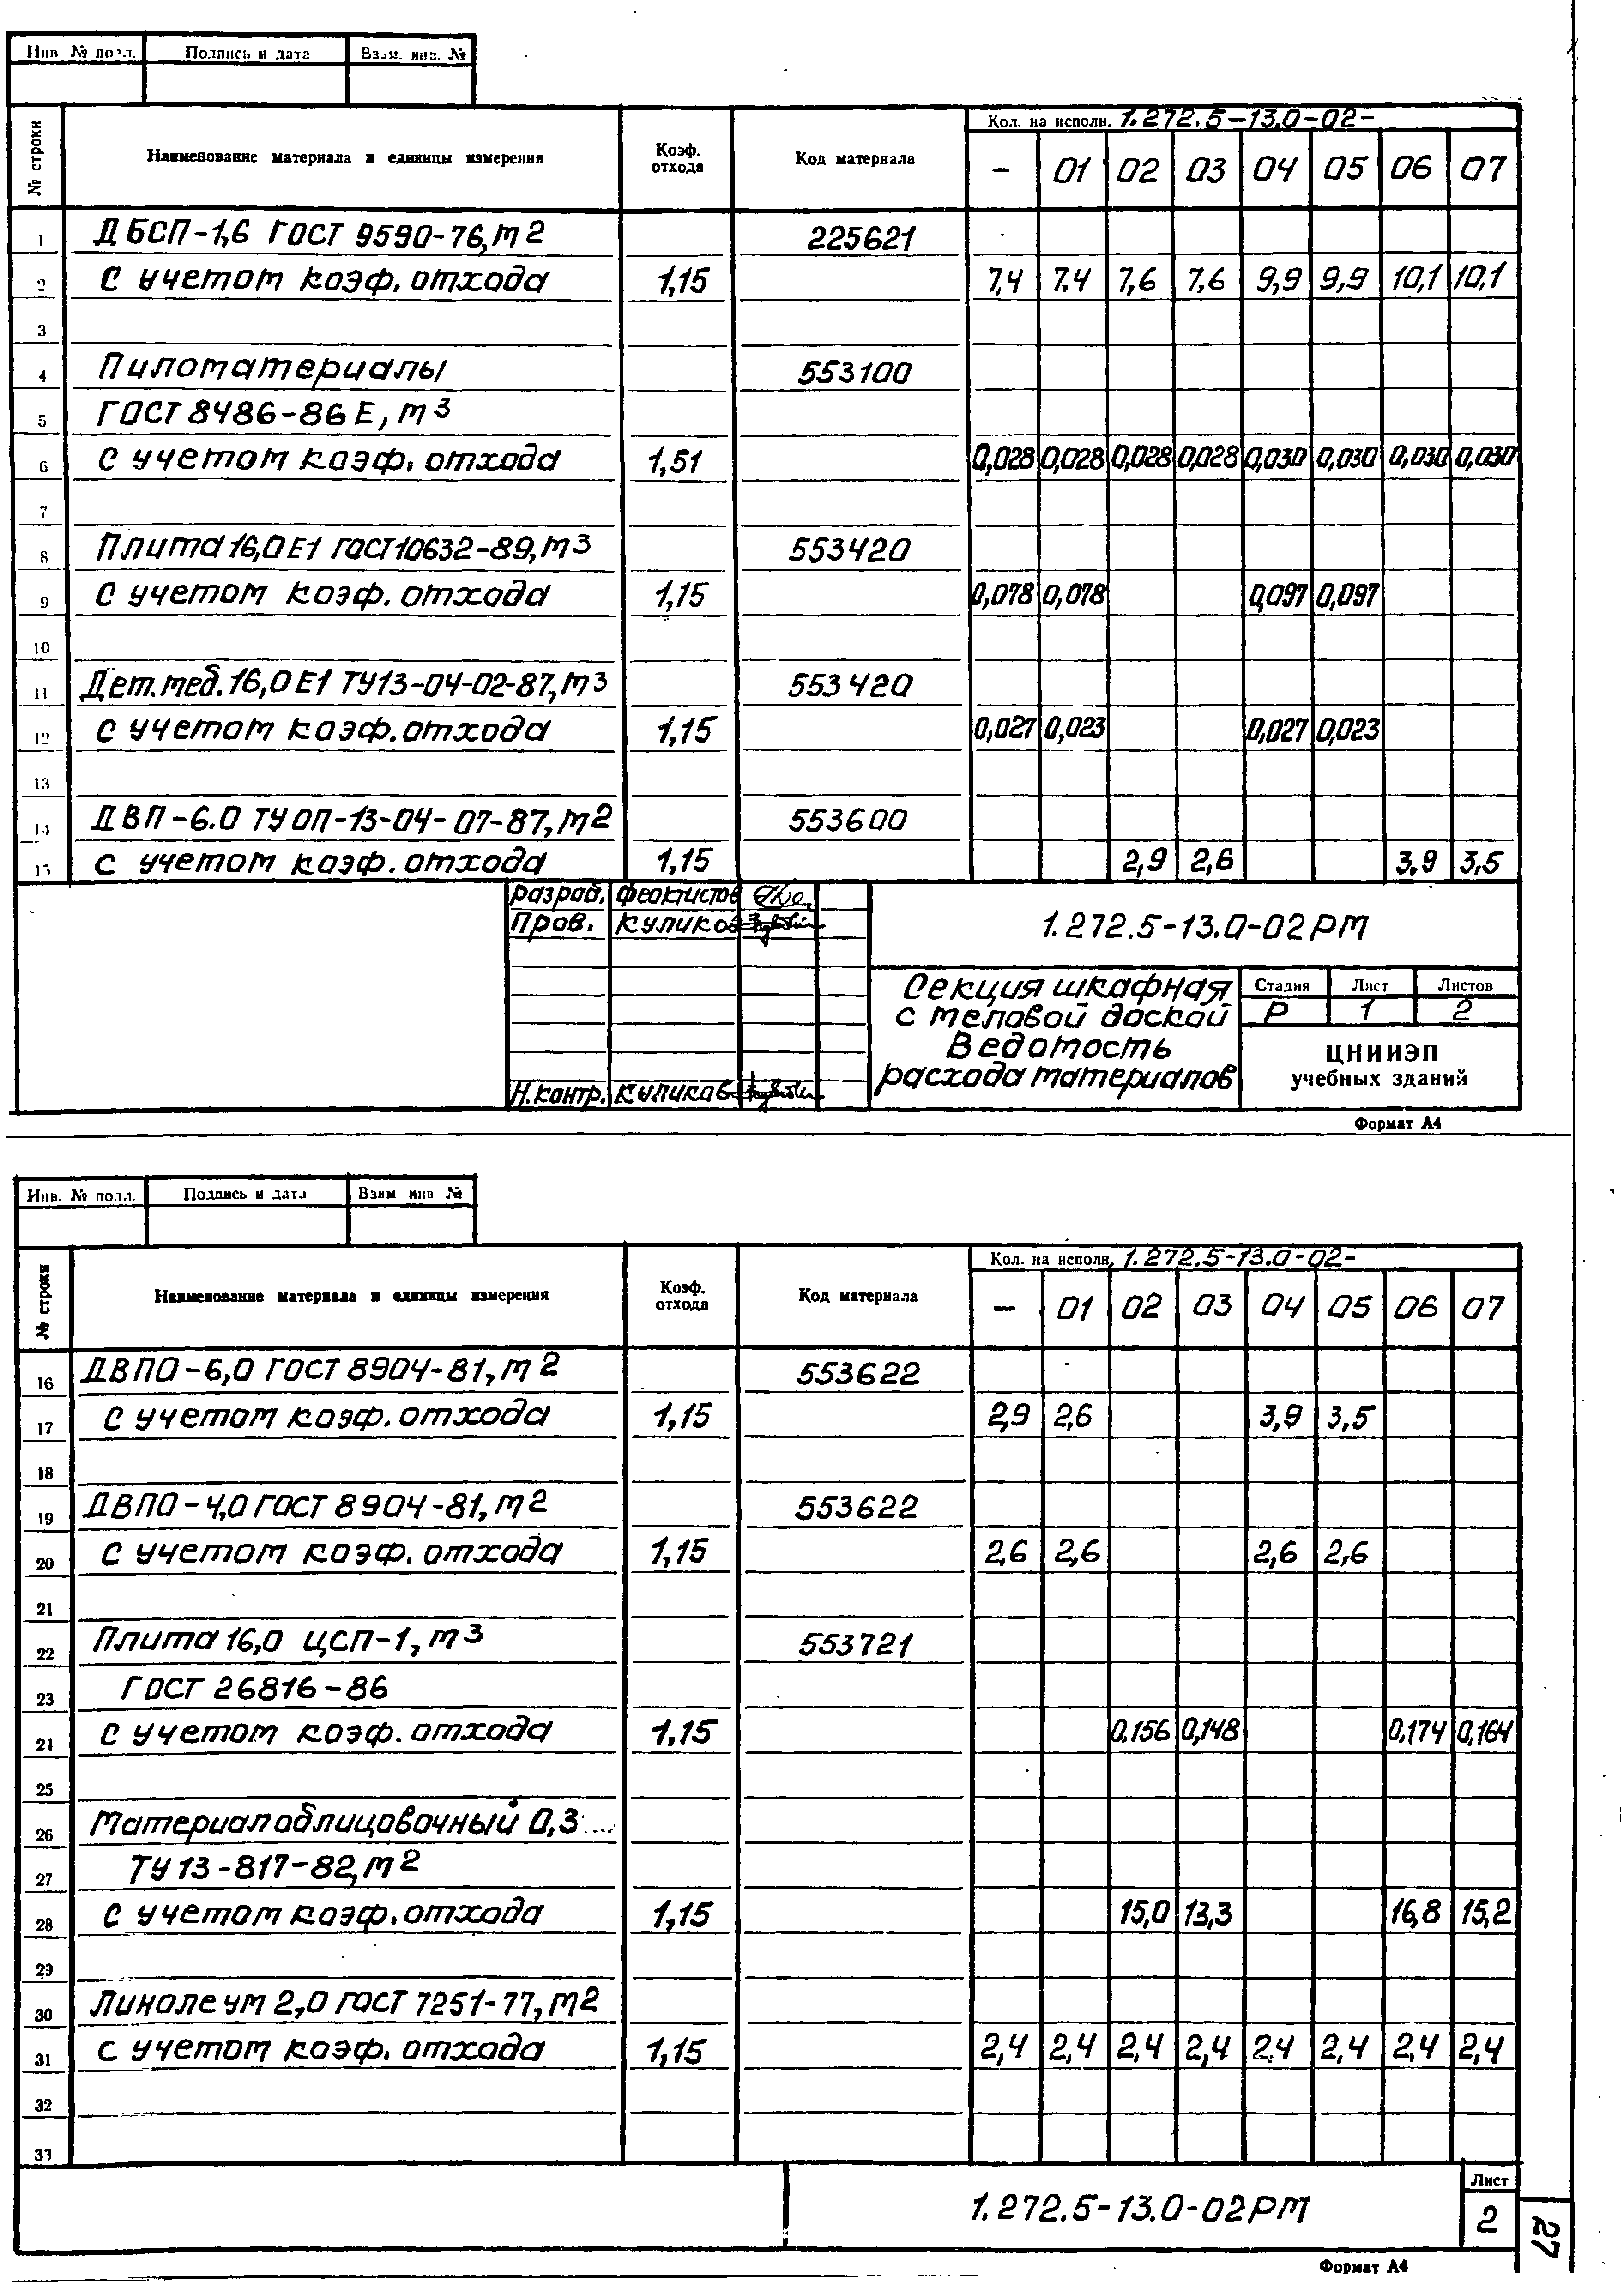 Инв. № подл. Подпись и дата Взам. инв. №
№ строки Наименование материала и единицы измерения Коэф. отхода Код материала Кол. на исполн. 1.272.5-13.0-02-
– 01 02 03 04 05 06 07
1 ДБСП-1,6 ГОСТ 9590-76, м2 225621
2 С учетом коэф. отхода 1,15 7,4 7,4 7,6 7,6 9,9 9,9 10,1 10,1
3
4 Пиломатериалы 553100
5 ГОСТ 8486-86Е, м3
6 С учетом коэф. отхода 1,51 0,028 0,028 0,028 0,028 0,030 0,030 0,030 0,030
7
8 Плита 16,0 Е1 ГОСТ 10632-89, м3 553420
9 С учетом коэф. отхода 1,15 0,078 0,078 0,097 0,097
10
11 Дет. меб. 16,0 Е1 ТУ13-04-02-87, м3 553420
12 С учетом коэф. отхода 1,15 0,027 0,023 0,027 0,023
13
14 ДВП-6.0 ТУ ОП-13-04-07-87, м2 553600
15 с учетом коэф. отхода 1,15 2,9 2,6 3,9 3,5
Разраб. Феоктистов
Пров. Куликов
Н.контр. Куликов
1.272.5-13.0-02РМ
Секция шкафная
с меловой доской
Ведомость
расхода материалов
Стадия Лист Листов
Р 1 2
ЦНИИЭП
учебных зданий
Формат А4
Инв. № подл. Подпись и дата Взам инв №
№ строки Наименование материала и единицы измерения Коэф. отхода Код материала Кол. на исполн. 1.272.5-13.0-02-
– 01 02 03 04 05 06 07
16 ДВПО-6,0 ГОСТ 8904-81, м2 553622
17 С учетом коэф. отхода 1,15 2,9 2,6 3,9 3,5
18
19 ДВПО-4,0 ГОСТ 8904-81, м2 553622
20 С учетом коэф. отхода 1,15 2,6 2,6 2,6 2,6
21
22 Плита 16,0 ЦСП-1, м3 553721
23 ГОСТ 26816-86
24 С учетом коэф. отхода 1,15 0,156 0,148 0,174 0,164
25
26 Материал облицовочный 0,3
27 ТУ 13-817-82, м2
28 С учетом коэф. отхода 1,15 15,0 13,3 16,8 15,2
29
30 Линолеум 2,0 ГОСТ 7251-77, м2
31 с учетом коэф. отхода 1,15 2,4 2,4 2,4 2,4 2,4 2,4 2,4 2,4
32
33
1.272.5-13.0-02РМ
Лист
2
Формат А4
27